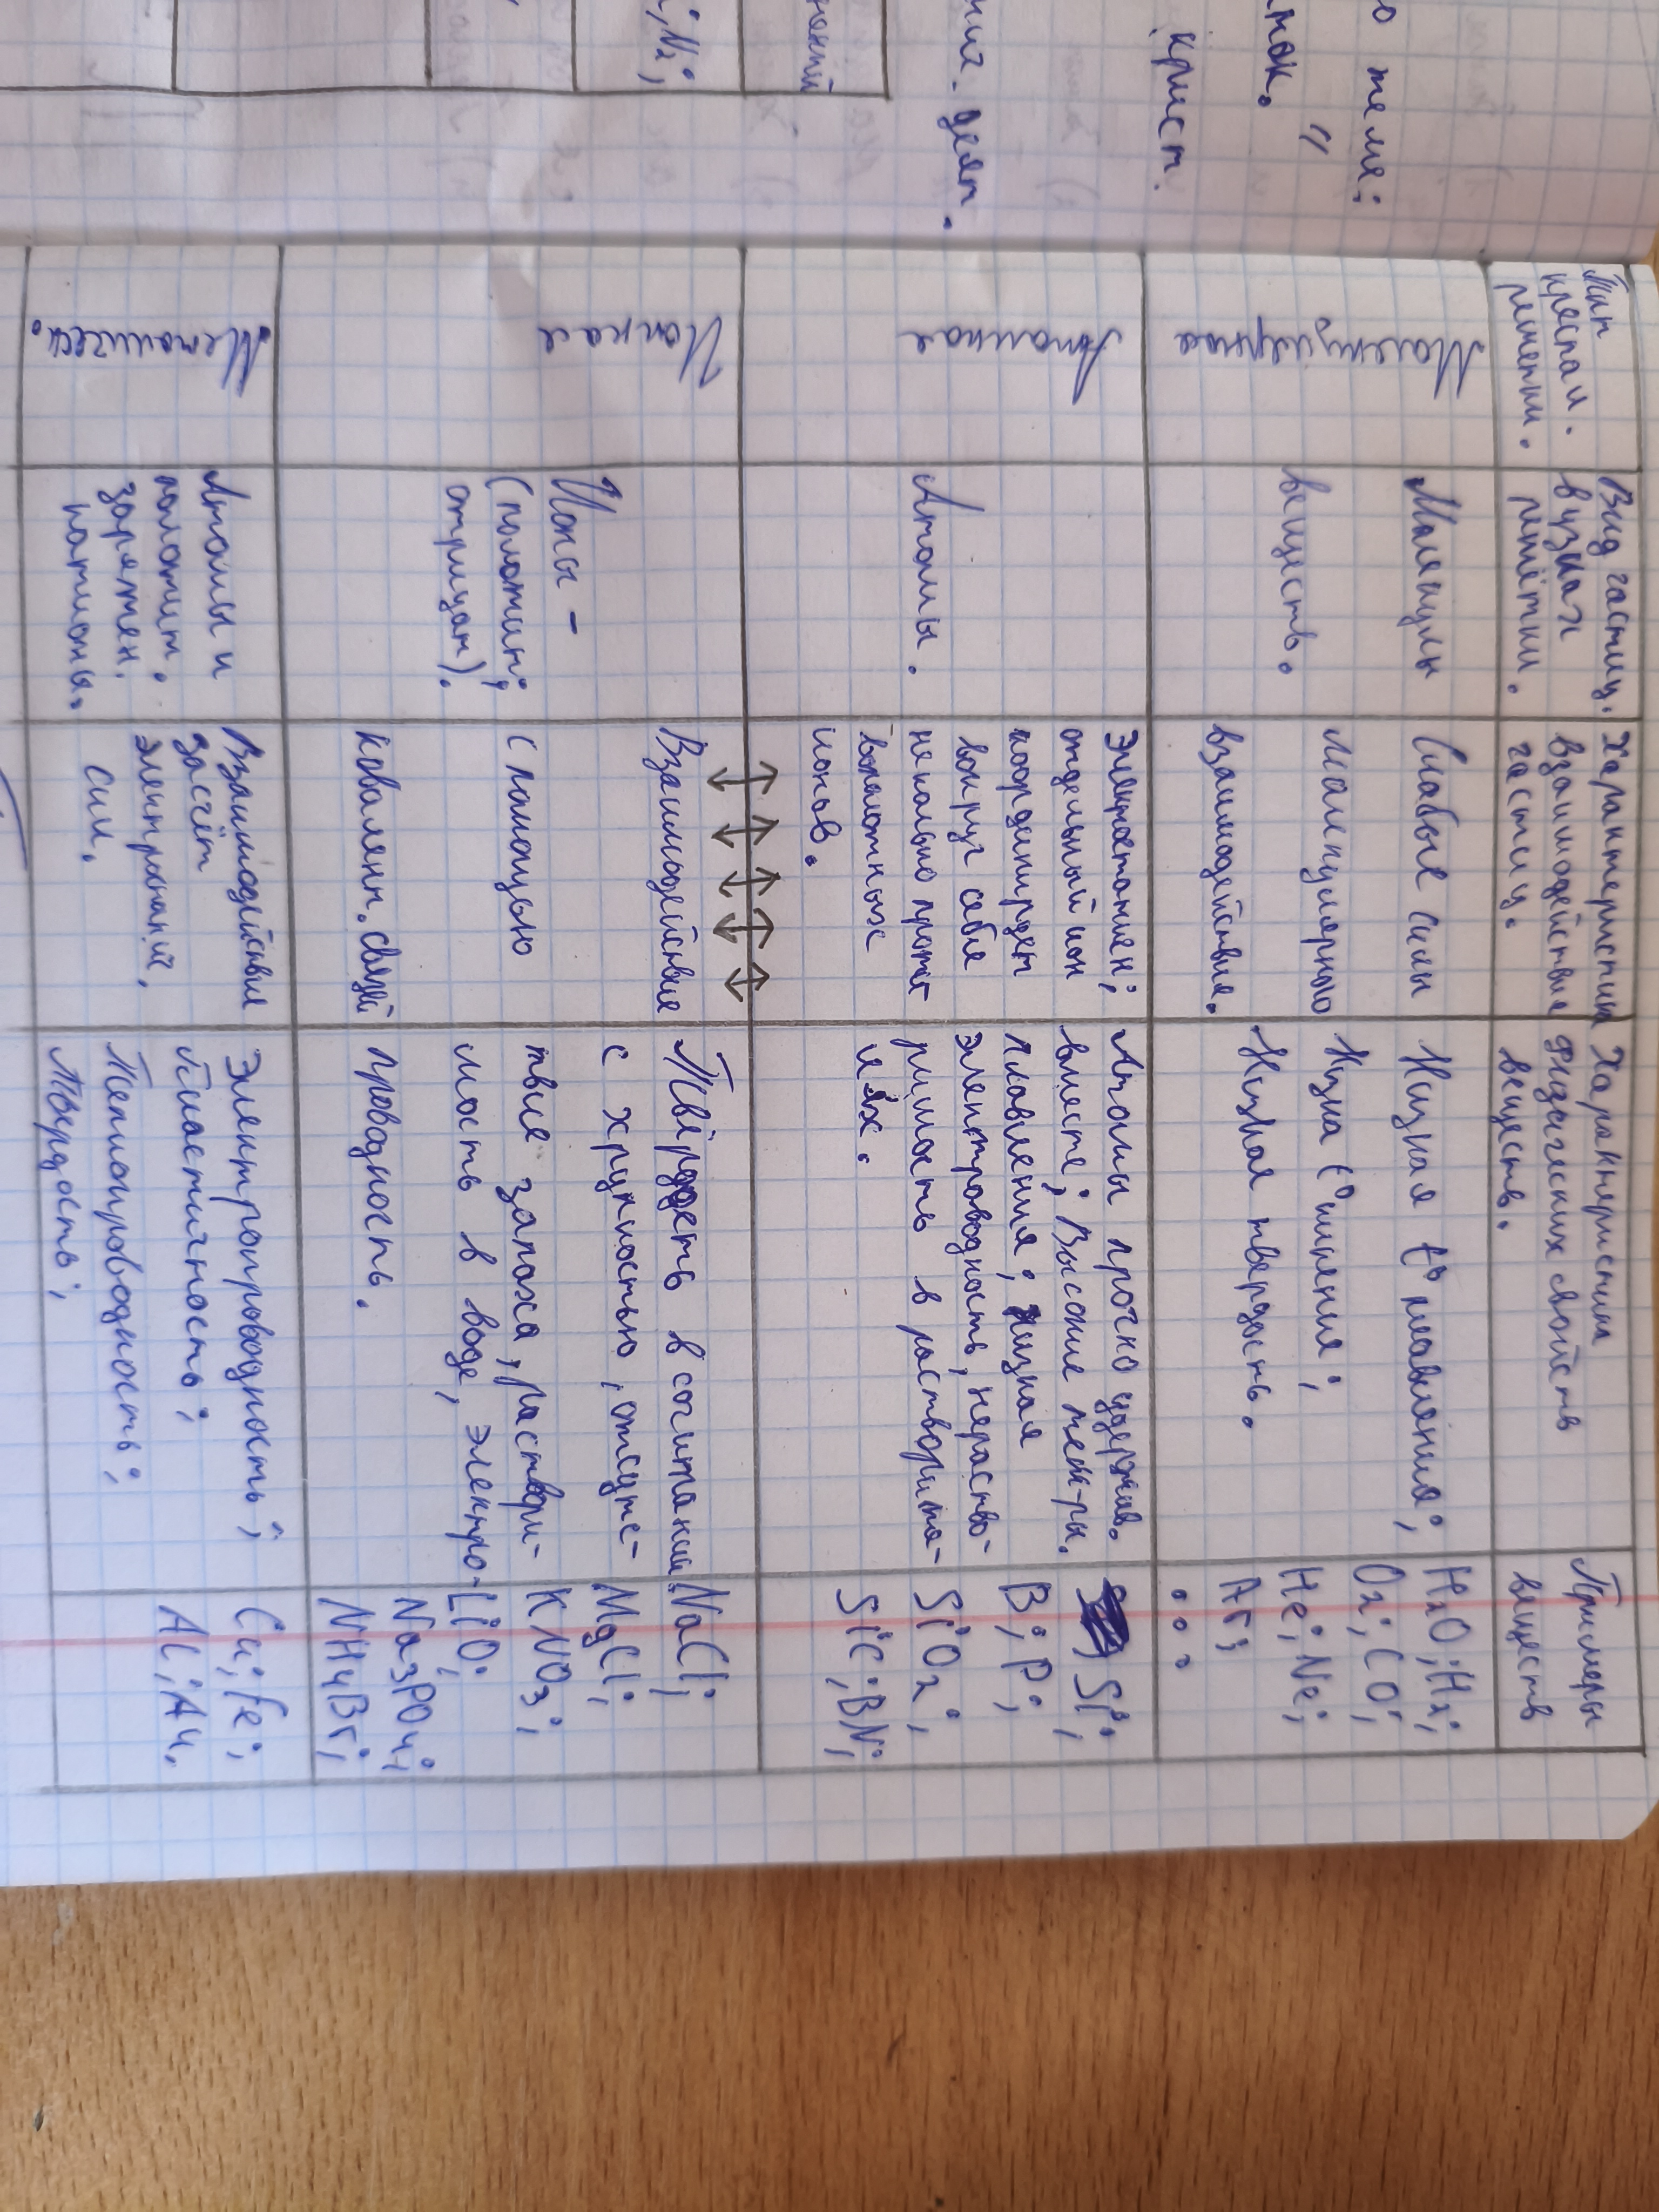 о теме:
"
крист.
деят.
Тип
кристал.
решетки.
Вид частиц.
в узлах
решётки.
Характеристика
взаимодействие
частиц.
Характеристика
физических свойств
веществ.
Примеры
веществ
Молекулярная
Молекулы
веществ.
Слабые силы
молекулярного
взаимодействия.
Низкая t° плавления;
Низка t° кипения;
Низкая твердость.
H2O; H2;
O2; CO;
He; Ne;
Ar;
...
Атомная
Атомы.
Электростатич;
отдельный ион
координирует
вокруг себя
несколько против
воположных
ионов.
Атомы прочно удержив.
вместе; Высокие тем-ры.
плавления; низкая
электроводность, нераство-
римость в растворите-
лях.
Si;
B; P;
SiO2;
SiC; BN;
Ионная
Ионы -
(положит;
отрицат).
Взаимодействие
с помощью
ковалент. связей
Твёрдость в сочетании
с хрупкостью, отсутс-
твие запаха, раствори-
мость в воде, электро-
проводность.
NaCl;
MgCl;
KNO3;
LiO;
Na3PO4;
NH4Br;
Металичес.
Атомы и
положит.
заряжен.
катионы.
Взаимодействия
засчёт
электронный,
сил.
Электропроводность;
Пластичность;
Теплопроводность;
Твердость;
Cu; Fe;
Al; Au.